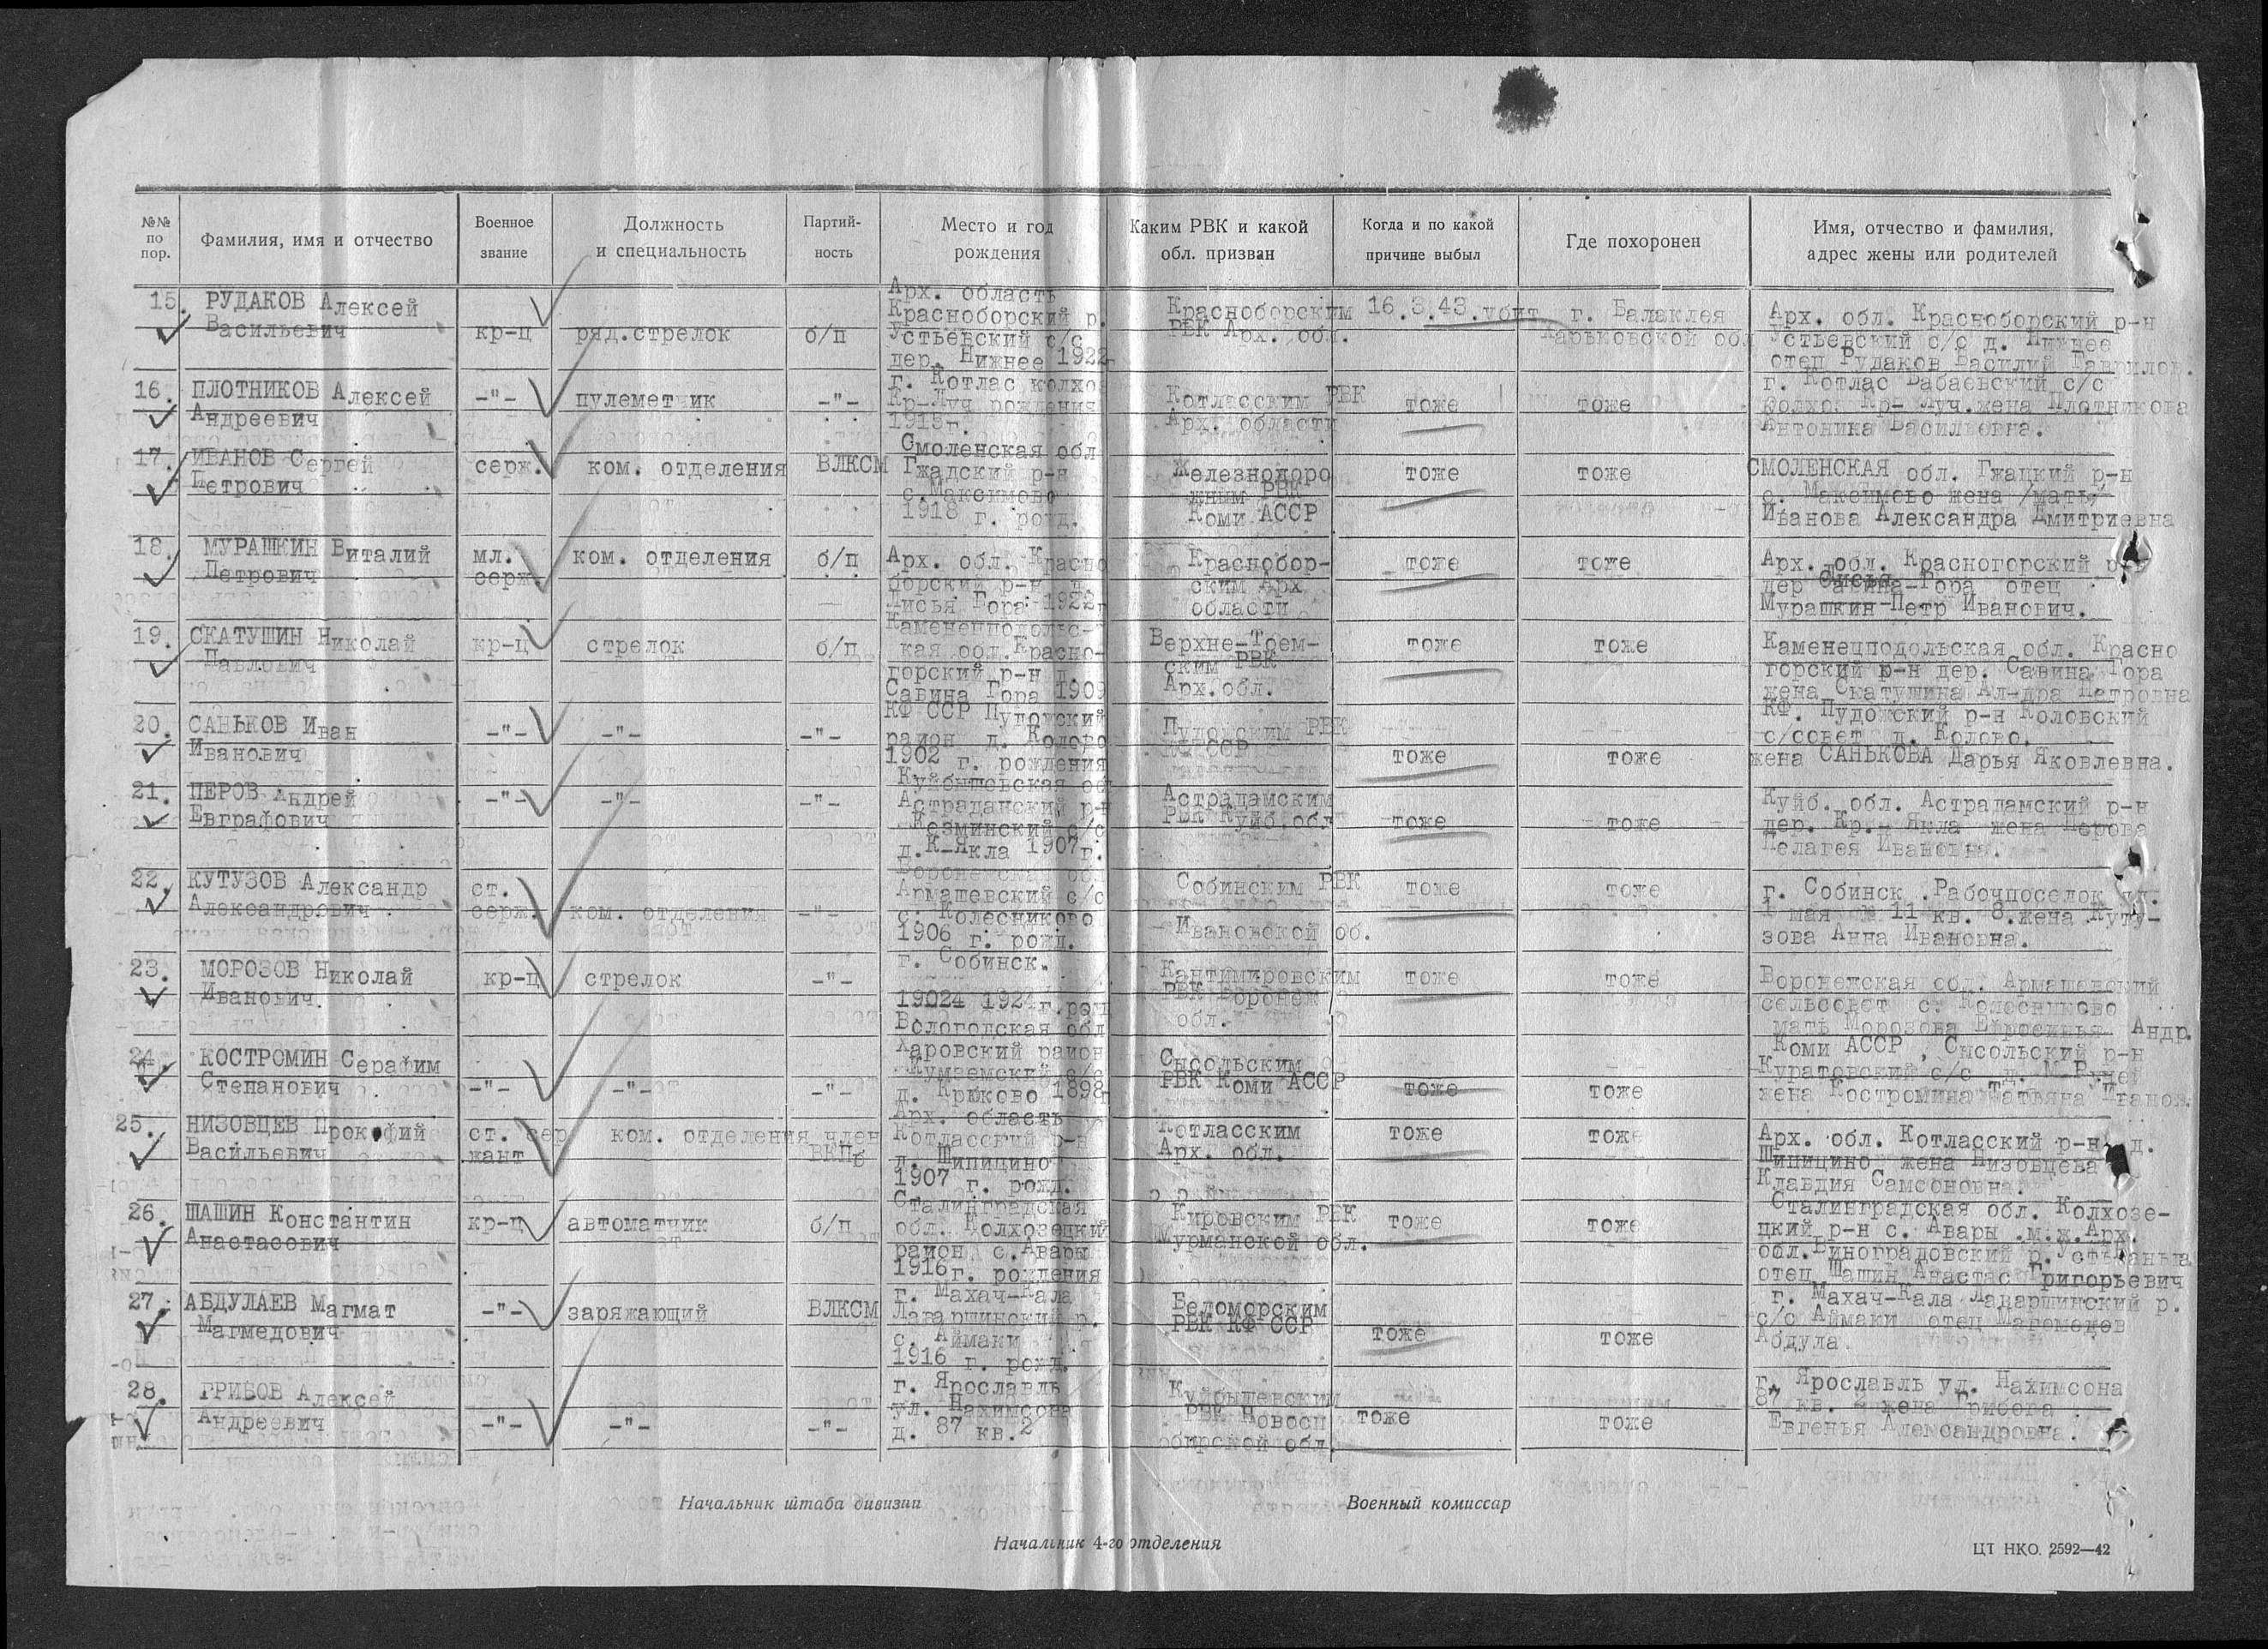 №№ по пор.
Фамилия, имя и отчество
Военное звание
Должность и специальность
Партий-ность
Место и год рождения
Каким РВК и какой обл. призван
Когда и по какой причине выбыл
Где похоронен
Имя, отчество и фамилия, адрес жены или родителей
15. РУДАКОВ Алексей
Васильевич
кр-ц
ряд.стрелок
б/п
Арх. область
Красноборский р.
Устьевский с/с
дер. Нижнее 1922
Красноборским
РВК Арх. обл.
16.3.43.убит
г. Балаклея
Харьковской обл
Арх. обл. Красноборский р-н
Устьевский с/с д. Нижнее
отец Рудаков Василий Гаврилов.
16. ПЛОТНИКОВ Алексей
Андреевич
-"-
пулеметчик
-"-
г. Котлас колхо
Кр-Луч рождения
1918г.
Котласским РВК
Арх. области
тоже
тоже
г. Котлас Вабаевский с/с
колхоз Кр- Луч.жена Плотникова
Антонина Васильевна.
17. ИВАНОВ Сергей
Петрович
серж.
ком. отделения
ВЛКСМ
Смоленская обл
Гжадский р-н
с.Максимово
1918 г. рожд.
Железнодоро
жным РВК
Коми АССР
тоже
тоже
СМОЛЕНСКАЯ обл. Гжацкий р-н
с. Максимово жена /мать/
Иванова Александра Дмитриевна
18. МУРАШКИН Виталий
Петрович
мл.
серж.
ком. отделения
б/п
Арх. обл. Красно
борский р-н д.
Лисья Гора 1922г
Краснобор-
ским Арх
области
тоже
тоже
Арх. обл. Красногорский р-н
дер Савина-Гора отец
Лисья
Мурашкин-Петр Иванович.
19. СКАТУШИН Николай
Павлович
кр-ц
стрелок
б/п
Каменецподольс-
кая обл.Красно-
горский р-н д.
Савина Гора 1909
Верхне-Тоем-
ским РВК
Арх.обл.
тоже
тоже
Каменецподольская обл. Красно
горский р-н дер. Савина Гора
жена Скатушина Ал-дра Петровна
20. САНЬКОВ Иван
Иванович
-"-
-"-
-"-
КФ ССР Пудожский
район д. Колово
1902 г. рождения
Пудожским РВК
КФССР
тоже
тоже
КФ. Пудожский р-н Коловский
с/совет д. Колово.
жена САНЬКОВА Дарья Яковлевна.
21. ПЕРОВ Андрей
Евграфович
-"-
-"-
-"-
Куйбышевская об
Астраданский р-н
с/с
д.К-Якла 1907г.
Астрадамским
РВК Куйб.обл
тоже
тоже
Куйб. обл. Астрадамский р-н
дер. Кр.- Якла жена Перова
Пелагея Ивановна.
22. КУТУЗОВ Александр
Александрович
ст.
серж.
ком. отделения
-"-
Воронежская об
Армашевский с/с
с. Колесниково
1906 г. рожд.
Собинским РВК
Ивановской об.
тоже
тоже
г. Собинск .Рабочпоселок ул.
1 мая № 11 кв. 8.жена Куту-
зова Анна Ивановна.
23. МОРОЗОВ Николай
Иванович.
кр-ц
стрелок
-"-
г. Собинск.
19024 1924г.рож
Кантимировским
РВК Воронеж
обл.
тоже
тоже
Воронежская об. Армашевский
сельсовет с. Колесниково
мать Морозова Ефросинья Андр.
24. КОСТРОМИН Серафим
Степанович
-"-
-"-
-"-
Вологодская обл
Харовский район
Кумземский с/с
д. Крюково 1898г
Сысольским
РВК Коми АССР
тоже
тоже
Коми АССР , Сысольский р-н
Куратовский с/с д. М-Ручей
жена Костромина Татьяна
25. НИЗОВЦЕВ Прокофий
Васильевич
ст. сер
жант
ком. отделения
член
ВКПб
Арх. область
Котласский р-н
д. Шипицино
1907 г. рожд.
Котласским
Арх. обл.
тоже
тоже
Арх. обл. Котласский р-н д.
Шипицино жена Низовцева
Клавдия Самсоновна.
26. ШАШИН Константин
Анастасович
кр-ц
автоматчик
б/п
Сталинградская
обл. Колхозецкий
район с.Авары
1916г. рождения
Кировским РВК
Мурманской обл.
тоже
тоже
Сталинградская обл. Колхозе-
цкий р-н с. Авары .м.ж.Арх.
обл.Виноградовский р. Усть Ваньга
отец Шашин Анастас Григорьевич
27. АБДУЛАЕВ Магмат
Магмедович
-"-
заряжающий
ВЛКСМ
г. Махач-Кала
Лаваршинский р.
с. Аймаки
1916 г. рожд.
Беломорским
РВК КФ ССР
тоже
тоже
г. Махач-Кала Лаваршинский р.
с/с Аймаки отец Магомедов
Абдула.
28. ГРИБОВ Алексей
Андреевич
-"-
-"-
-"-
г. Ярославль
ул. Нахимсона
д. 87 кв.2
Куйбышевским
РВК Новоси
бирской обл.
тоже
тоже
г. Ярославль ул. Нахимсона
87 кв. 2 жена Грибова
Евгенья Александровна.
Начальник штаба дивизии
Военный комиссар
Начальник 4-го отделения
ЦТ НКО. 2592—42